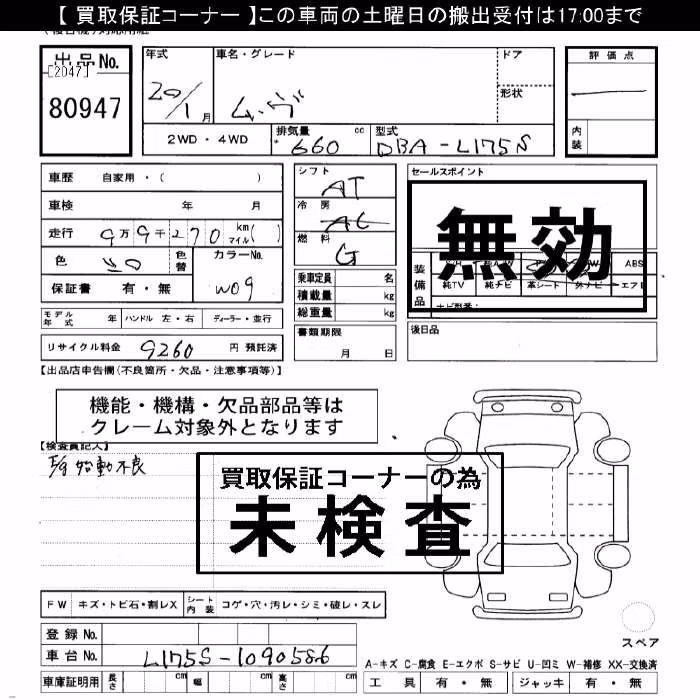 【 買取保証コーナー 】この車両の土曜日の搬出受付は17:00まで
出品No.
[2047]
80947
年式
20/1月
車名・グレード
ムーヴ
ドア
形状
2WD・4WD
排気量 660 cc
型式 DBA-L175S
評価点
内装
車歴 自家用・( )
車検 年 月
走行 9万9千270 km マイル( )
色
色替
カラーNo.
W09
保証書 有・無
モデル年式 年 ハンドル 左・右 ディーラー・並行
リサイクル料金 9260 円 預託済
シフト
AT
冷房
AC
燃料
G
乗車定員 名
積載量 kg
総重量 kg
書類期限
月 日
セールスポイント
無効
装備品
ABS
純TV 純ナビ 革シート 外ナビ エアB
ナビ型番:
後日品
【出品店申告欄(不良箇所・欠品・注意事項等)】
機能・機構・欠品部品等は
クレーム対象外となります
【検査員記入】
E/g 始動不良
買取保証コーナーの為
未検査
FW キズ・トビ石・割レX シート内装 コゲ・穴・汚レ・シミ・破レ・スレ
登録No.
車台No. L175S-1090586
車庫証明用 長さ cm 幅 cm 高さ cm
スペア
A-キズ C-腐食 E-エクボ S-サビ U-凹ミ W-補修 XX-交換済
工具 有・無 ジャッキ 有・無